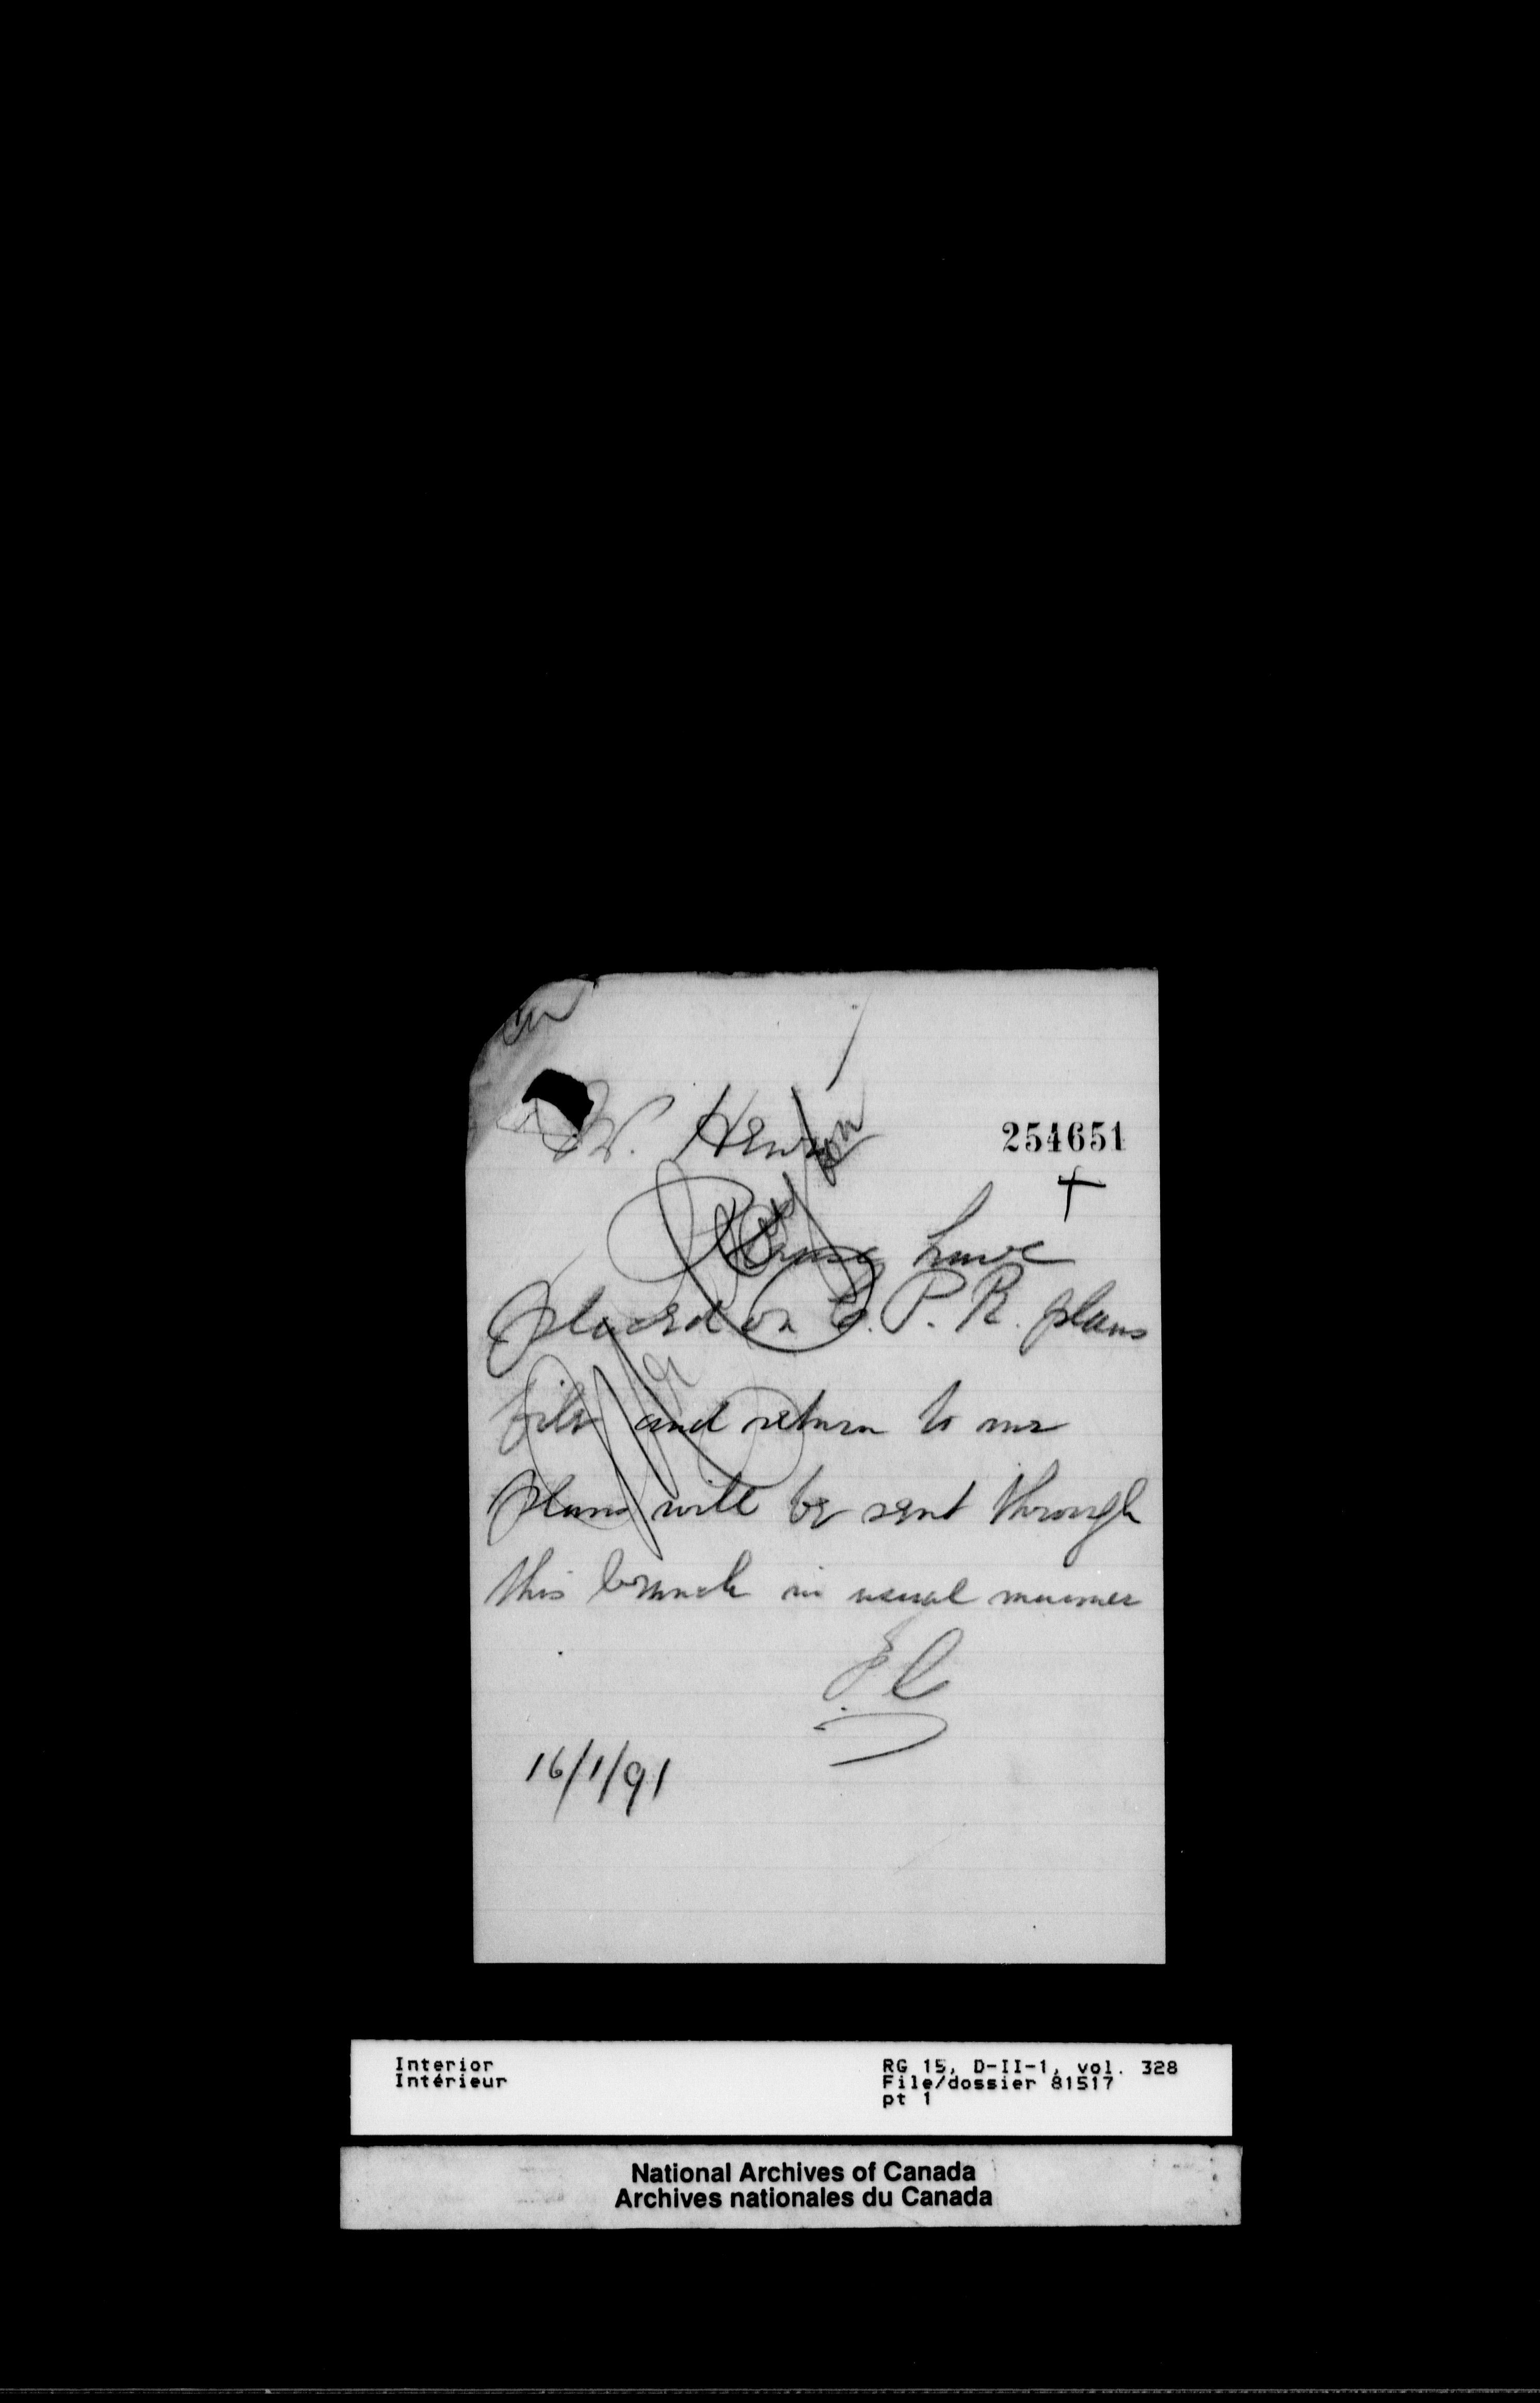 Henry
254651
Please have
placed on C. P. R. plans
file and return to me
plans will be sent through
this branch in usual manner
16/1/91
Interior
Intérieur
RG 15, D-II-1, vol. 328
File/dossier 81517
pt 1
National Archives of Canada
Archives nationales du Canada